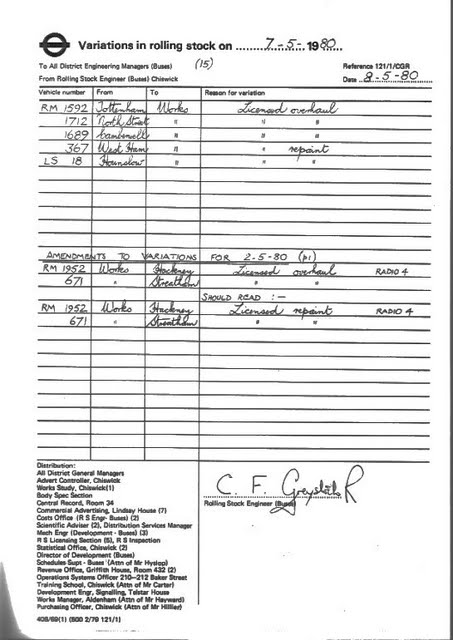 Variations in rolling stock on 7-5-1980
To All District Engineering Managers (Buses) (15) Reference 121/1/CGR
From Rolling Stock Engineer (Buses) Chiswick Date 8-5-80
Vehicle number From To Reason for variation
RM 1592 Tottenham Works Licensed overhaul
1712 North Street " " "
1689 Camberwell " " "
367 West Ham " " repaint
LS 18 Hounslow " " "
AMENDMENTS TO VARIATIONS FOR 2-5-80 (p1)
RM 1952 Works Hackney Licensed overhaul RADIO 4
671 " Streatham " "
SHOULD READ :-
RM 1952 Works Hackney Licensed repaint RADIO 4
671 " Streatham " "
Distribution:
All District General Managers
Advert Controller, Chiswick
Works Study, Chiswick(1)
Body Spec Section
Central Record, Room 34
Commercial Advertising, Lindsay House (7)
Costs Office (R S Engr- Buses) (2)
Scientific Adviser (2), Distribution Services Manager
Mech Engr (Development - Buses) (3)
R S Licensing Section (5), R S Inspection
Statistical Office, Chiswick (2)
Director of Development (Buses)
Schedules Supt - Buses (Attn of Mr Hyslop)
Revenue Office, Griffith House, Room 432 (2)
Operations Systems Officer 210-212 Baker Street
Training School, Chiswick (Attn of Mr Carter)
Development Engr, Signalling, Telstar House
Works Manager, Aldenham (Attn of Mr Hayward)
Purchasing Officer, Chiswick (Attn of Mr Hillier)
C. F.
Rolling Stock Engineer (Buses)
408/69(1) (500 2/79 121/1)